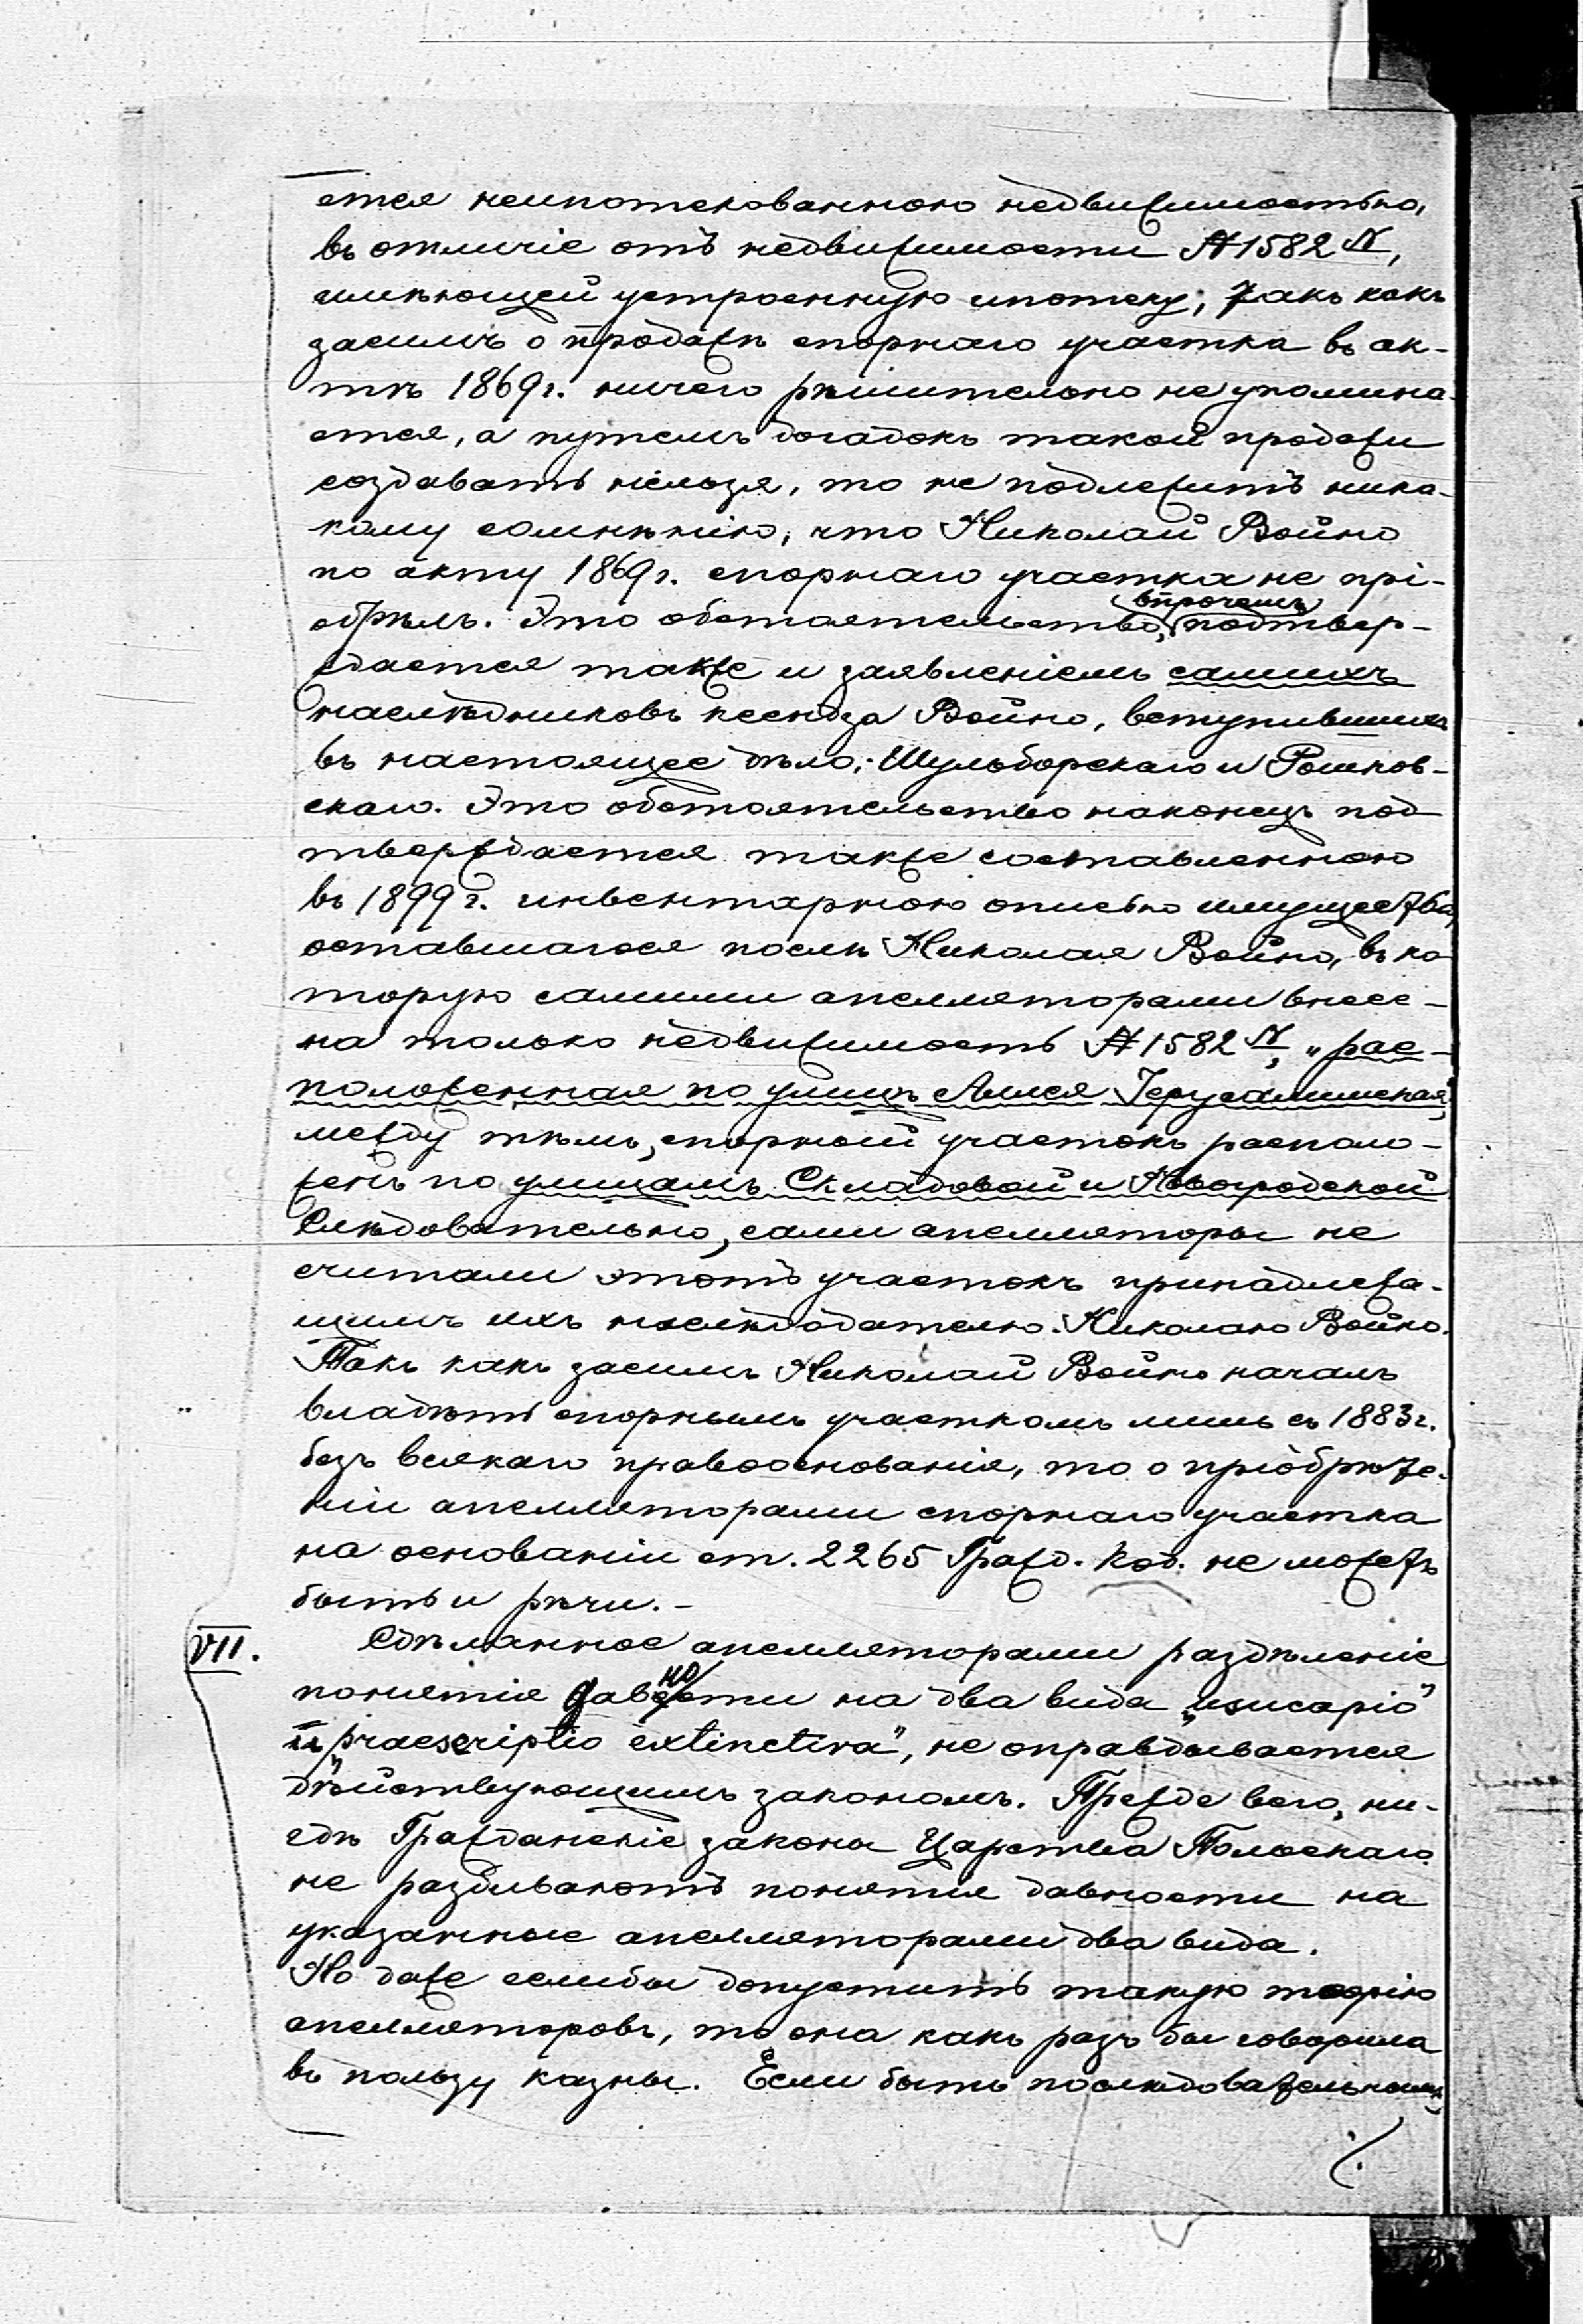 ется неипотекованною недвижимостью,
въ отличіе отъ недвижимости № 1582 N,
имѣющей устроенную ипотеку; такъ какъ
засимъ о продажѣ спорнаго участка въ ак-
тѣ 1869 г. ничего рѣшительно не упомина-
ется, а путемъ догадокъ такой продажи
создавать нельзя, то не подлежитъ ника-
кому сомнѣнію, что Николай Войно
по акту 1869 г. спорнаго участка не прі-
обрѣлъ. Это обстоятельство, впрочемъ, подтвер-
ждается также и заявленіемъ самихъ
наслѣдниковъ ксендза Войно, вступившихъ
въ настоящее дѣло: Шульборскаго и Рошков-
скаго. Это обстоятельство наконецъ под-
тверждается также составленною
въ 1899 г. инвентарною описью имущества,
оставшагося послѣ Николая Войно, въ ко-
торую самими апелляторами внесе-
на только недвижимость № 1582 N, „рас-
положенная по улицѣ Аллея Іерусалимская,"
между тѣмъ, спорный участокъ располо-
женъ по улицамъ Складовой и Новогродской
Слѣдовательно, сами апелляторы не
считали этотъ участокъ принадлежа-
щимъ ихъ наслѣдодателю Николаю Войно.
Такъ какъ засимъ Николай Войно началъ
владѣть спорнымъ участкомъ лишь съ 1883 г.
безъ всякаго правооснованія, то о пріобрѣте-
ніи апелляторами спорнаго участка
на основаніи ст. 2265 Гражд. Код. не можетъ
быть и рѣчи. -
VII. Сдѣланное апелляторами раздѣленіе
понятія давности на два вида „usucapio"
и „praescriptio extinctiva", не оправдывается
дѣйствующимъ закономъ. Прежде всего, ни-
гдѣ Гражданскіе законы Царства Польскаго
не разбиваютъ понятія давности на
указанные апелляторами два вида.
Но даже еслибы допустить такую теорію
апелляторовъ, то она какъ разъ бы говорила
въ пользу казны. Если быть послѣдовательнымъ,
./.